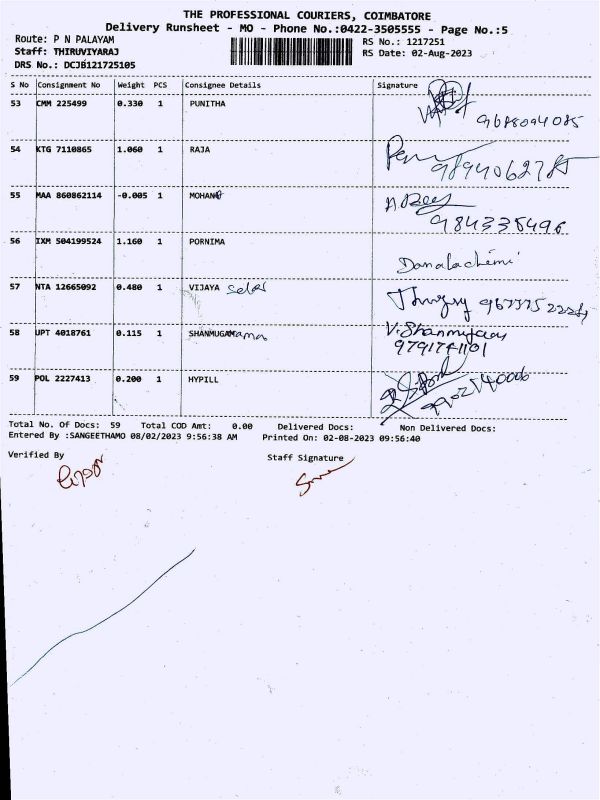 THE PROFESSIONAL COURIERS, COIMBATORE
Delivery Runsheet - MO - Phone No.:0422-3505555 - Page No.:5
Route: P N PALAYAM
RS No.: 1217251
Staff: THIRUVIYARAJ
RS Date: 02-Aug-2023
DRS No.: DCJB121725105
S No Consignment No Weight PCS Consignee Details Signature
53 CMM 225499 0.330 1 PUNITHA
9688094085
54 KTG 7110865 1.060 1 RAJA
55 MAA 860862114 -0.005 1 MOHAN
984335496
56 IXM 504199524 1.160 1 PORNIMA
Danalachimi
57 NTA 12665092 0.480 1 VIJAYA
58 UPT 4018761 0.115 1 SHANMUGAM
V.Shanmugam
9791741101
59 POL 2227413 0.200 1 HYPILL
Total No. Of Docs: 59 Total COD Amt: 0.00 Delivered Docs: Non Delivered Docs:
Entered By :SANGEETHAMO 08/02/2023 9:56:38 AM Printed On: 02-08-2023 09:56:40
Verified By Staff Signature